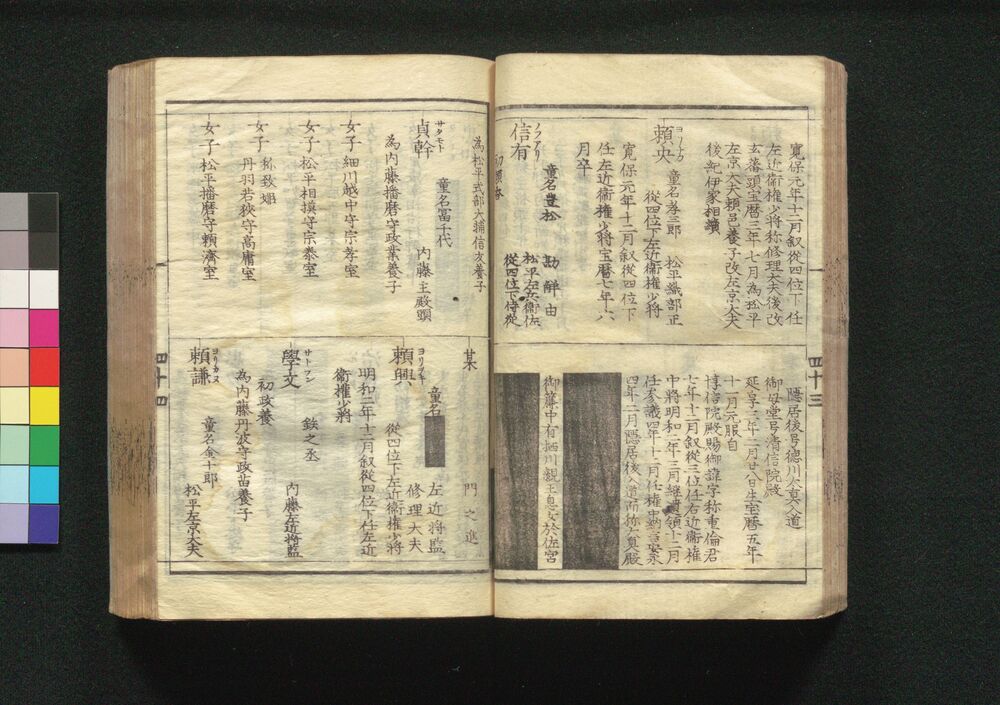 寛保元年十二月叙從四位下任
左近衞權少将称修理大夫後改
玄蕃頭宝暦三年七月為松平
左京大夫頼邑養子改左京大夫
後紀伊家相續
ヨリナカ
頼央
童名孝三郎
松平織部正
從四位下左近衞權少将
寛保元年十二月叙從四位下
任左近衞權少将宝暦七年六
月卒
ノブアリ
信有
童名豊松
勘解由
松平左兵衞佐
從四位下侍從
初頼
隠居後号徳川大真入道
御母堂号清信院殿
延享三年二月廿八日生宝暦五年
十一月元服自
惇信院殿賜御諱字称重倫君
七年十二月叙從三位任右近衞權
中将明和二年三月継遺領十二月
任参議四年十二月任權中納言安永
四年二月隠居後入道而称大真殿
御簾中有栖川親王息女於佐宮
四十三
為松平式部大輔信友養子
サダモト
貞幹
童名冨千代
内藤主殿頭
為内藤播磨守政業養子
女子 細川越中守宗孝室
女子 松平相摸守宗泰室
女子 称致姫
丹羽若狭守高庸室
女子 松平播磨守頼濟室
某
門之進
ヨリオキ
頼興
童名
左近将監
修理大夫
從四位下左近衞權少将
明和二年十二月叙從四位下任左近
衞權少将
サトブン
學文
鉄之丞
内藤左近将監
初政養
為内藤丹波守政苗養子
ヨリカヌ
頼謙
童名金十郎
松平左京大夫
四十四